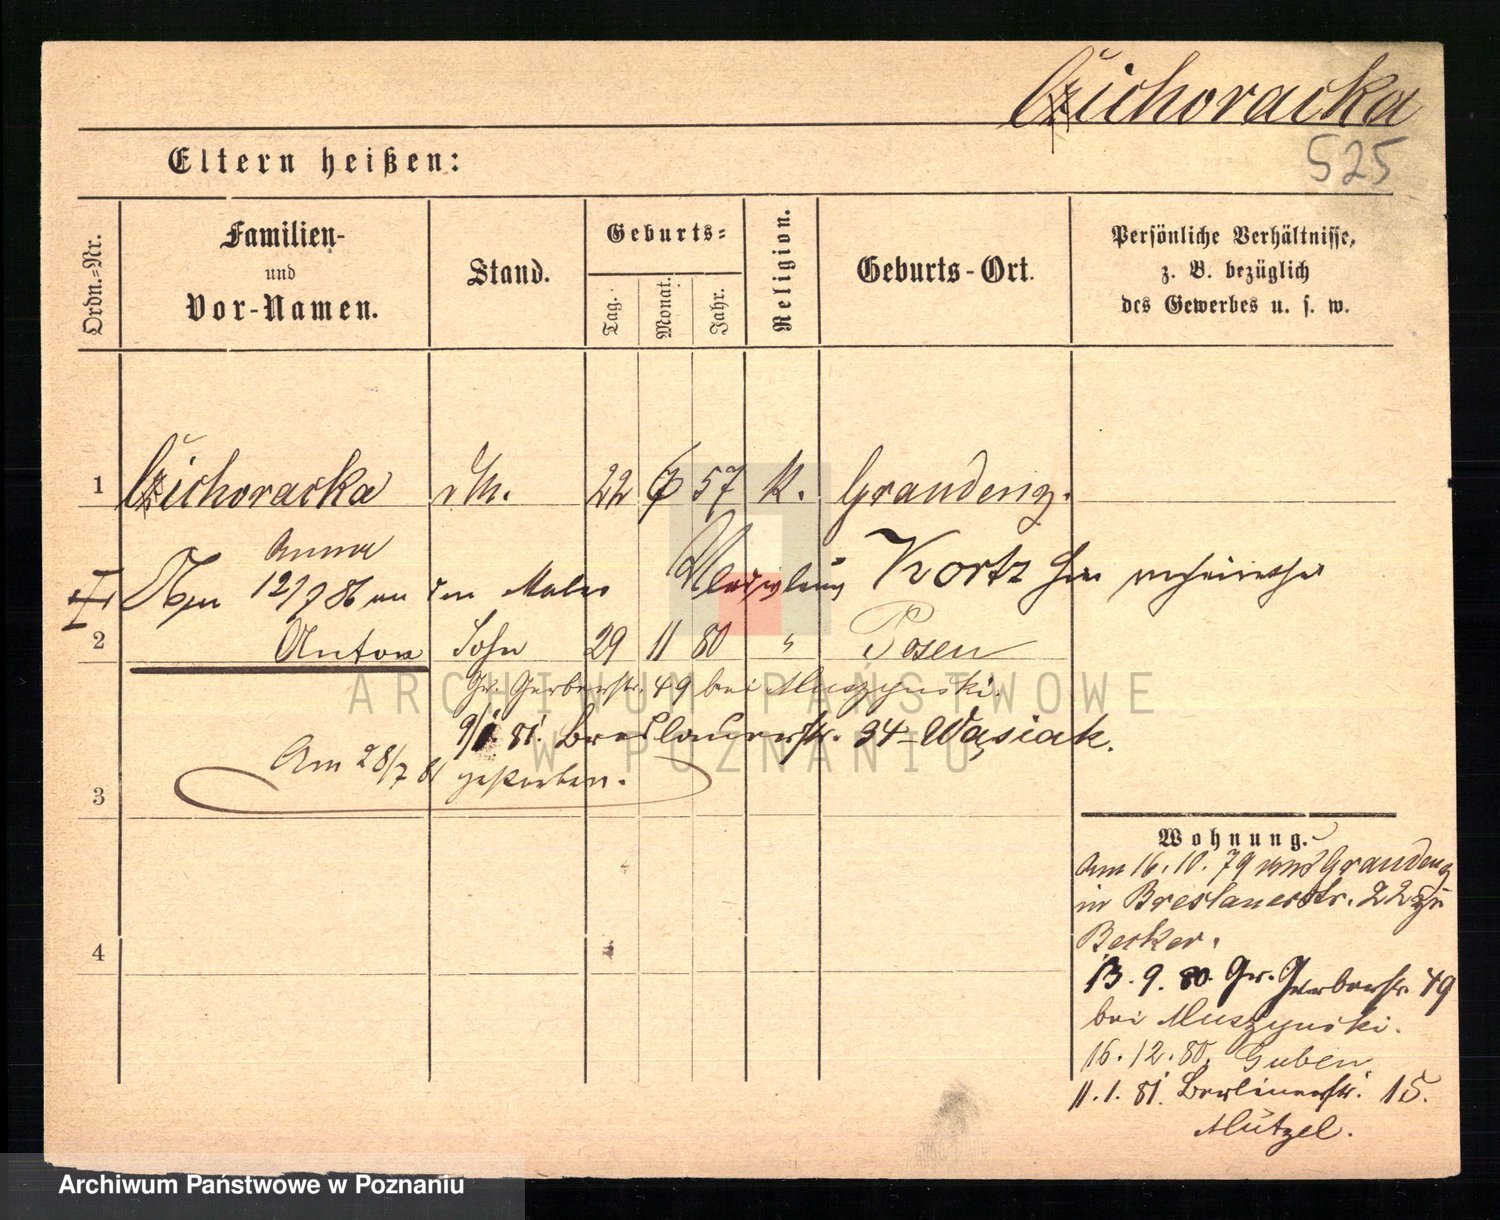 Czichoracka
525
Eltern heißen:
Ordn.-Nr.
Familien-
und
Vor-Namen.
Stand.
Geburts-
Tag.
Monat.
Jahr.
Religion.
Geburts-Ort.
Persönliche Verhältnisse,
z. B. bezüglich
des Gewerbes u. s. w.
1 Czichoracka 22 7 57 K. Graudenz.
Anna
12/7 86 an den Maler Kortz hier verheirathet
2 Anton Sohn 29 11 80 " Posen
Gr. Gerberstr. 49 bei Muszynski.
9/1. 81. Breslauerstr. 34 Wasiak.
Am 28/7 81 gestorben.
3
4
Wohnung.
Am 16. 10. 79 von Graudenz
in Breslauerstr. 22 zu
Becker.
13. 9. 80. Gr. Gerberstr. 49
bei Muszynski.
16. 12. 80. Guben
11. 1. 81. Berlinerstr. 15.
Mützel.
ARCHIWUM PAŃSTWOWE
W POZNANIU
Archiwum Państwowe w Poznaniu